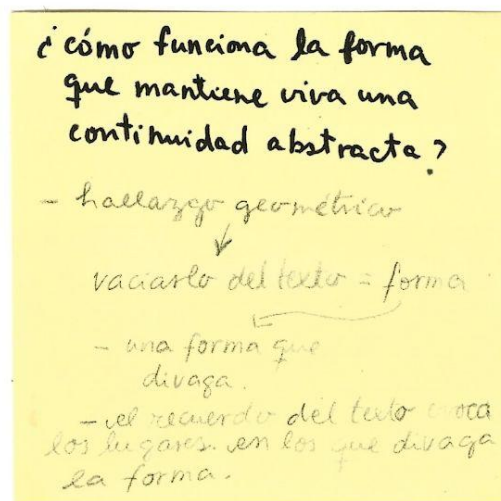 ¿cómo funciona la forma
que mantiene viva una
continuidad abstracta?
- hallazgo geométrico
↓
vaciarlo del texto = forma
- una forma que
divaga.
- el recuerdo del texto evoca
los lugares en los que divaga
la forma.